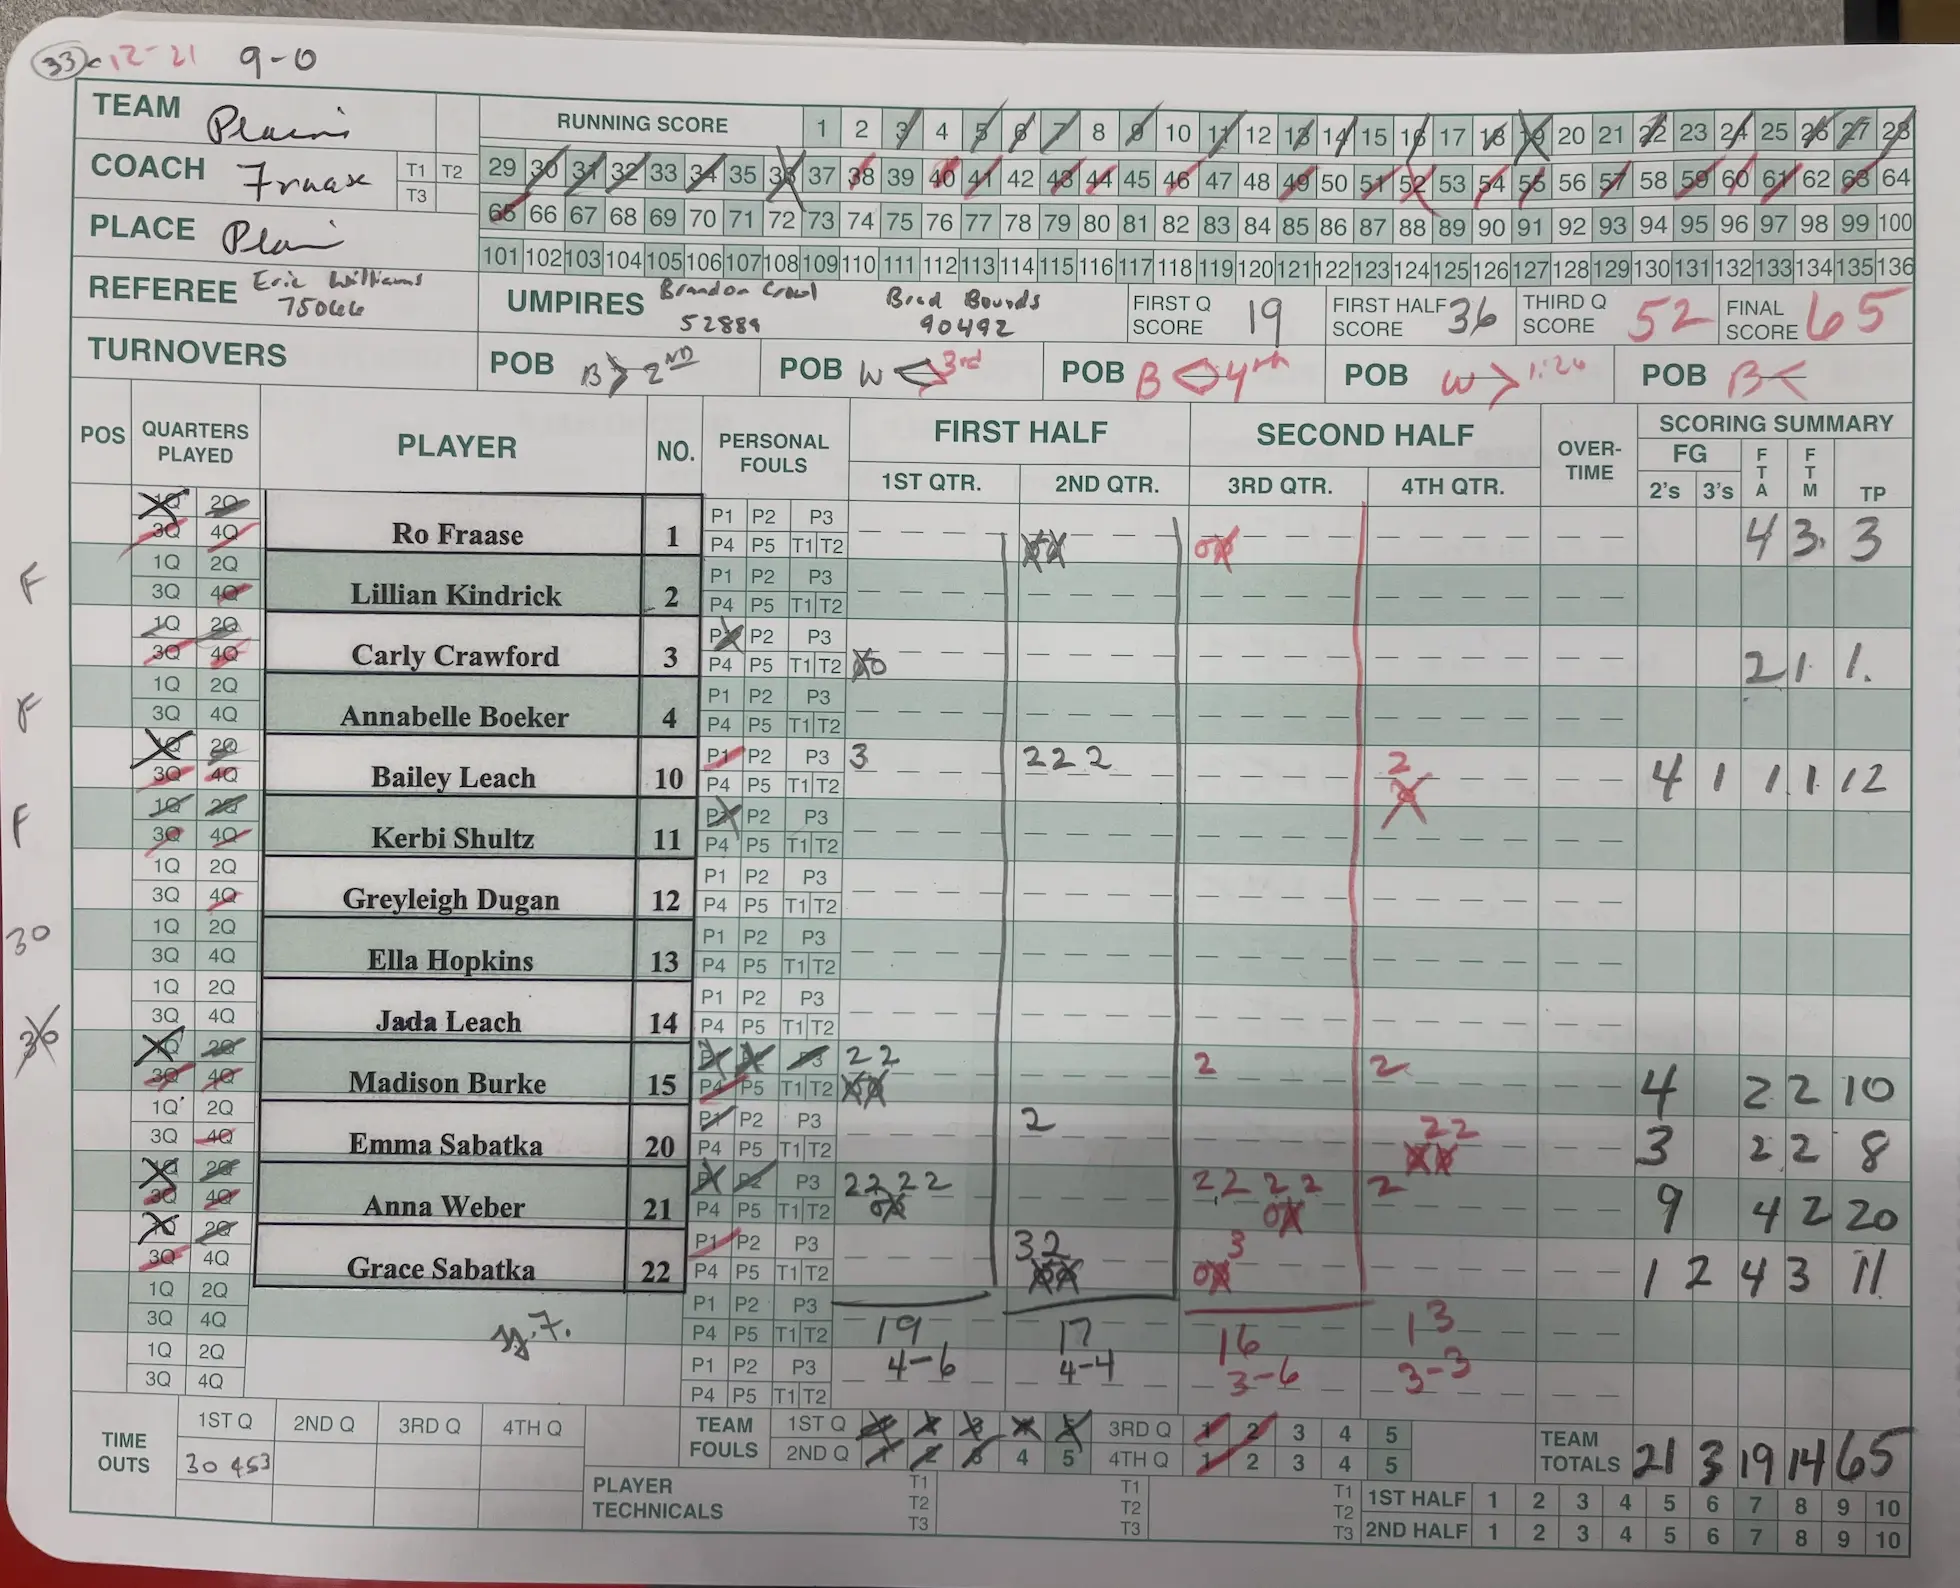 33 12-21 9-0
TEAM Plains
RUNNING SCORE 1 2 3 4 5 6 7 8 9 10 11 12 13 14 15 16 17 18 19 20 21 22 23 24 25 26 27 28
COACH Fraase T1 T2 T3
29 30 31 32 33 34 35 36 37 38 39 40 41 42 43 44 45 46 47 48 49 50 51 52 53 54 55 56 57 58 59 60 61 62 63 64
PLACE Plains
65 66 67 68 69 70 71 72 73 74 75 76 77 78 79 80 81 82 83 84 85 86 87 88 89 90 91 92 93 94 95 96 97 98 99 100
101 102 103 104 105 106 107 108 109 110 111 112 113 114 115 116 117 118 119 120 121 122 123 124 125 126 127 128 129 130 131 132 133 134 135 136
REFEREE Eric Williams 75066
UMPIRES Brandon Crowl 52889 Brad Bounds 90492
FIRST Q SCORE 19
FIRST HALF SCORE 36
THIRD Q SCORE 52
FINAL SCORE 65
TURNOVERS
POB B > 2ND
POB W < 3rd
POB B < 4th
POB W > 1:26
POB B <
POS QUARTERS PLAYED PLAYER NO. PERSONAL FOULS FIRST HALF SECOND HALF OVER-TIME SCORING SUMMARY
1ST QTR. 2ND QTR. 3RD QTR. 4TH QTR. FG 2's 3's FTA FTM TP
1Q 2Q 3Q 4Q Ro Fraase 1 P1 P2 P3 P4 P5 T1 T2 4 3 3
F 1Q 2Q 3Q 4Q Lillian Kindrick 2 P1 P2 P3 P4 P5 T1 T2
1Q 2Q 3Q 4Q Carly Crawford 3 P1 P2 P3 P4 P5 T1 T2 2 1 1
F 1Q 2Q 3Q 4Q Annabelle Boeker 4 P1 P2 P3 P4 P5 T1 T2
1Q 2Q 3Q 4Q Bailey Leach 10 P1 P2 P3 P4 P5 T1 T2 3 2 2 2 2 4 1 1 1 12
F 1Q 2Q 3Q 4Q Kerbi Shultz 11 P1 P2 P3 P4 P5 T1 T2
1Q 2Q 3Q 4Q Greyleigh Dugan 12 P1 P2 P3 P4 P5 T1 T2
30 1Q 2Q 3Q 4Q Ella Hopkins 13 P1 P2 P3 P4 P5 T1 T2
1Q 2Q 3Q 4Q Jada Leach 14 P1 P2 P3 P4 P5 T1 T2
30 1Q 2Q 3Q 4Q Madison Burke 15 P1 P2 P3 P4 P5 T1 T2 2 2 2 2 4 2 2 10
1Q 2Q 3Q 4Q Emma Sabatka 20 P1 P2 P3 P4 P5 T1 T2 2 2 2 3 2 2 8
1Q 2Q 3Q 4Q Anna Weber 21 P1 P2 P3 P4 P5 T1 T2 2 2 2 2 2 2 2 2 2 9 4 2 20
1Q 2Q 3Q 4Q Grace Sabatka 22 P1 P2 P3 P4 P5 T1 T2 3 2 3 1 2 4 3 11
1Q 2Q 3Q 4Q P1 P2 P3 P4 P5 T1 T2 19 17 16 13
1Q 2Q 3Q 4Q P1 P2 P3 P4 P5 T1 T2 4-6 4-4 3-6 3-3
TIME OUTS 1ST Q 2ND Q 3RD Q 4TH Q
30 453
TEAM FOULS 1ST Q 1 2 3 4 5 3RD Q 1 2 3 4 5
2ND Q 1 2 3 4 5 4TH Q 1 2 3 4 5
TEAM TOTALS 21 3 19 14 65
PLAYER TECHNICALS T1 T2 T3 T1 T2 T3 T1 T2 T3
1ST HALF 1 2 3 4 5 6 7 8 9 10
2ND HALF 1 2 3 4 5 6 7 8 9 10